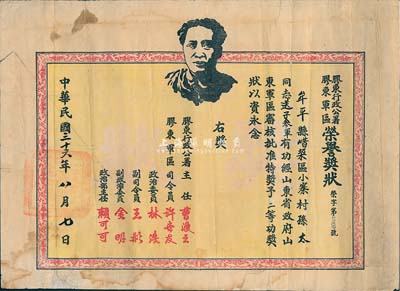 膠東行政公署
膠東軍區
榮譽奬狀
榮字第 號
牟平縣崻巣區小寨村孫太
同志送子參軍有功經山東省政府山
東軍區審核批准特奬予二等功奬
狀以資永念
右奬
膠東行政公署主任 曹漫之
膠東軍區司令員 許世友
政治委員 林浩
副司令員 王彬
副政治委員 金明
政治部主任 賴可可
中華民國三十六年八月七日